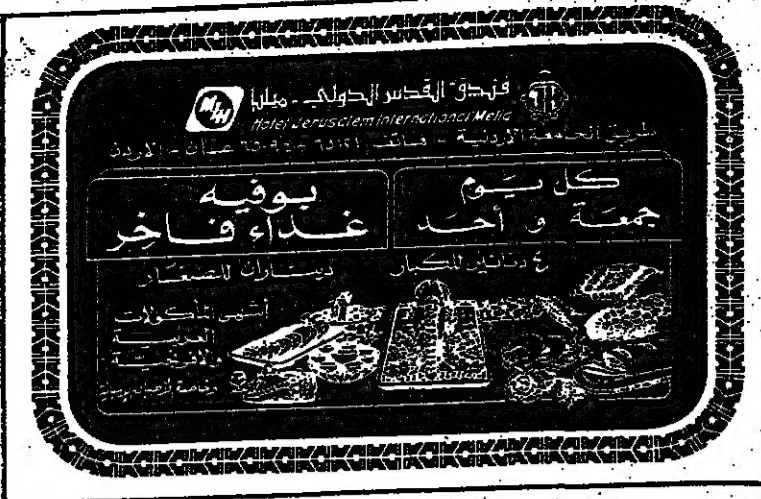 فندق القدس الدولي - ميليا
MIH
Hotel Jerusalem International Melia
طريق الجامعة الأردنية - هاتف عمان - الأردن
كل يوم
جمعة و أحد
بوفيه
غداء فاخر
٤ دنانير للكبار ديناران للصغار
أشهى المأكولات
العربية
والافرنجية